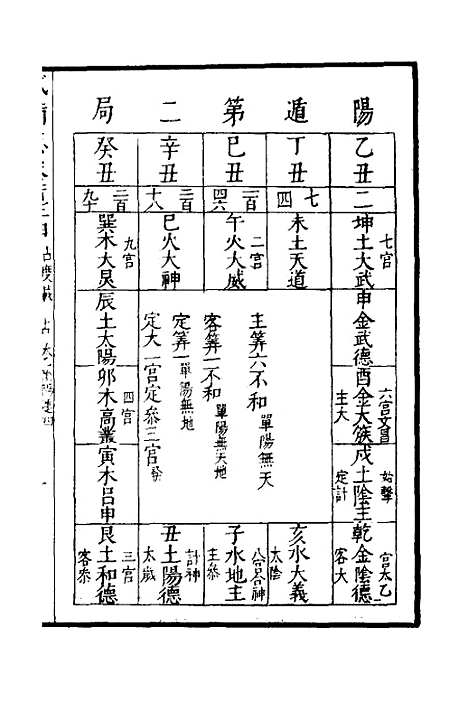 陽遁第二局
乙丑 二
丁丑 七四
己丑 二百四六
辛丑 三百十八
癸丑 三百九十
七宮 坤土大武
申金武德
六宮文昌 酉金大簇 主大
始擊 戌土陰主 定計
宮太乙 乾金陰德 客大
未土天道
亥水大義 太陰
二宮 午火大威
主筭六不和 單陽無天
客筭一不和 單陽無天地
合神 子水地主 主叅
巳火大神
定筭一單陽無地
定大一宮定叅三宮發
計神 丑土陽德 太歲
九宮 巽木大炅
辰土太陽
四宮 卯木高叢
寅木呂申
三宮 艮土和德 客叅